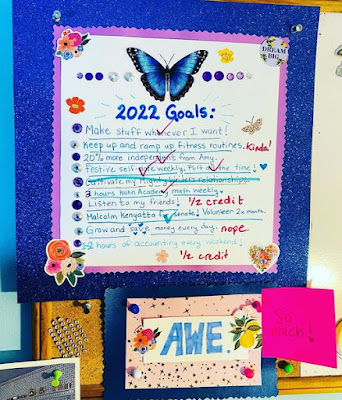 DREAM
BIG
2022 Goals:
Make stuff whenever I want!
Keep up and ramp up fitness routines. Kinda!
20% more independent from Amy.
Festive self-care weekly, PLAY all the time!
Cultivate my mighty elders relationships.
2 hours Kahn Academy math weekly.
Listen to my friends! 1/2 credit
Malcolm Kenyatta for Senate! Volunteer 2x month.
Grow and save money every day. nope.
1-2 hours of accounting every weekend!
1/2 credit
AWE.
So
much!